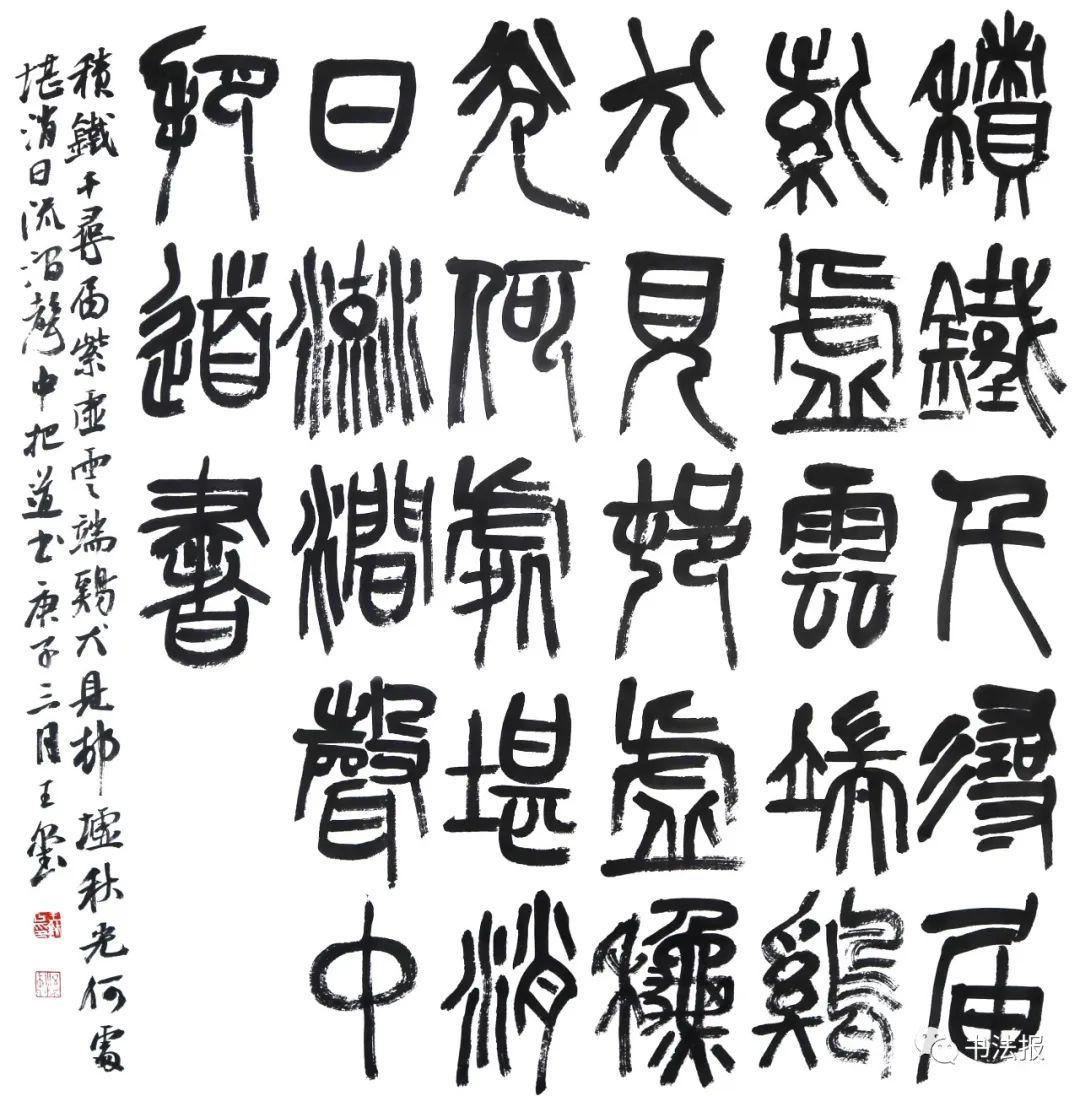 積鐵千尋屆
紫虛雲端鷄
犬見邨虛秋
光何處堪消
日流澗聲中
把道書
積鐵千尋屆紫虛雲端鷄犬見邨墟秋光何處
堪消日流澗聲中把道书庚子三月王
书法报